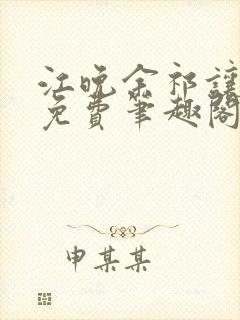 江晚余祁让
免费笔趣阁
申某某